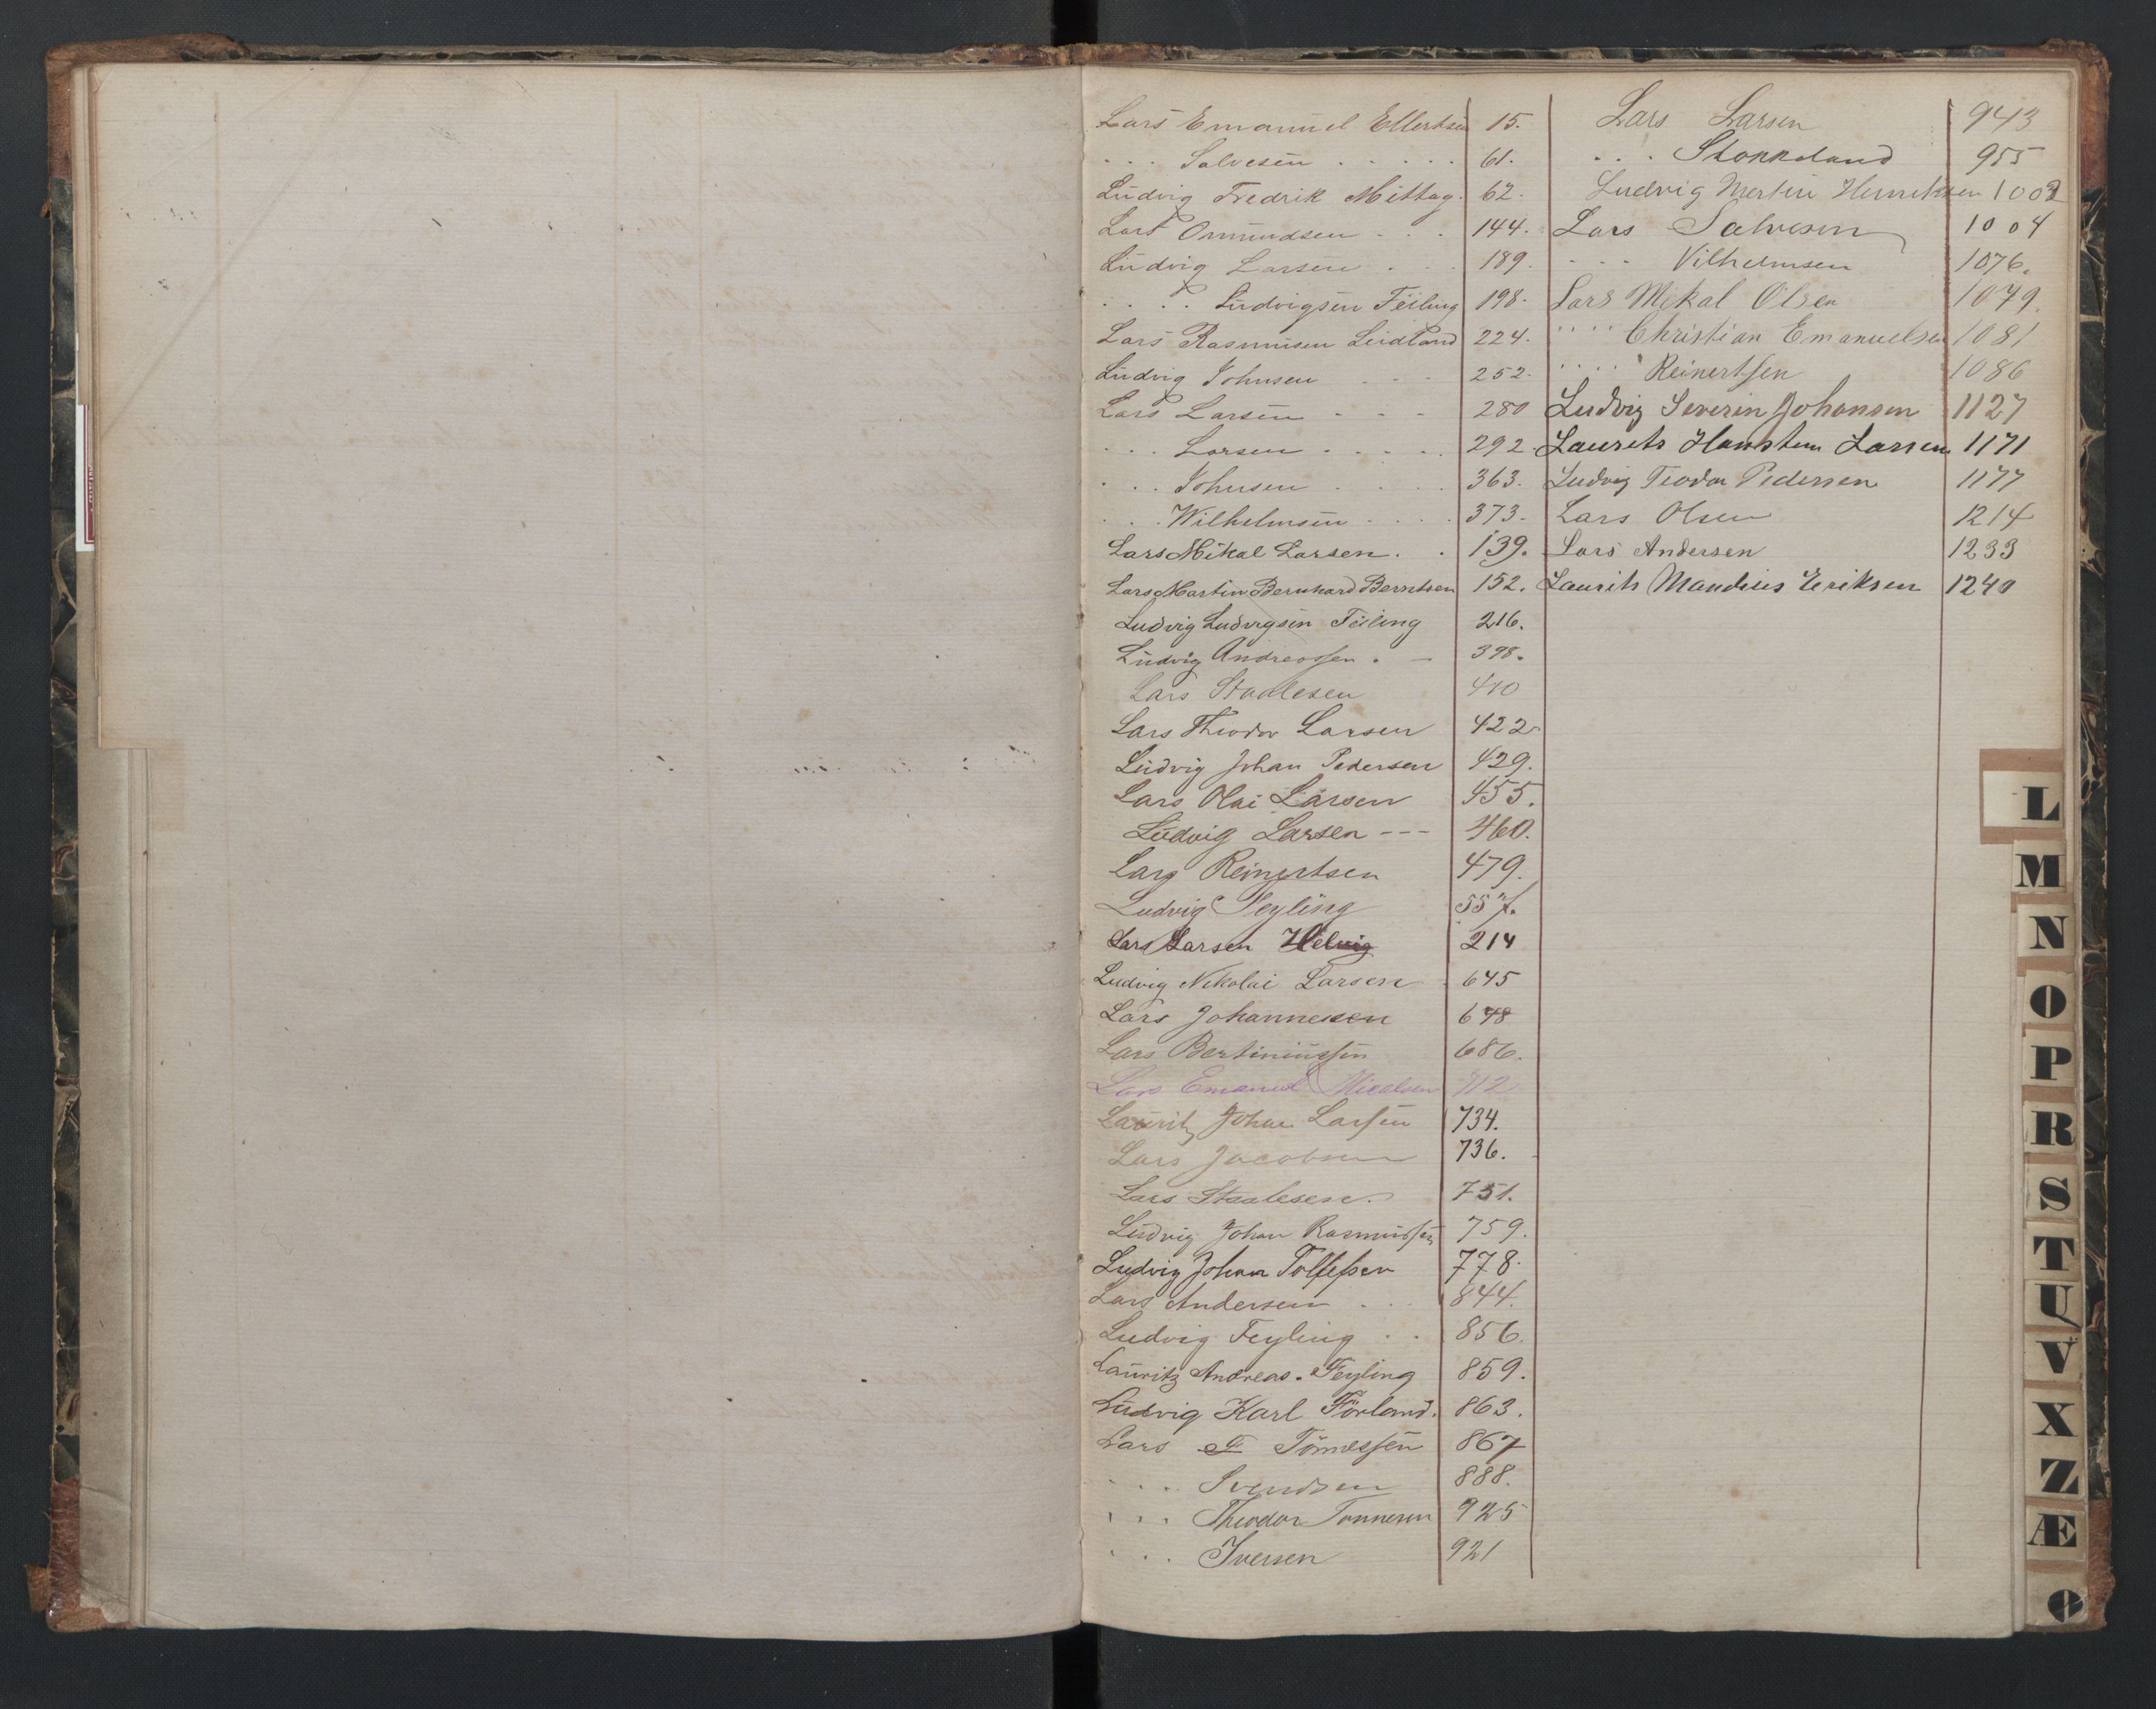 Lars Emanuel Ellertsen 15.
. . . Salvesen . . . . . 61.
Ludvig Fredrik Mittag. 62.
Lars Omundsen . . . 144.
Ludvig Larsen . . . 189.
. . . . Ludvigsen Feiling 198.
Lars Rasmusen Leidland 224.
Ludvig Johnsen . . . 252.
Lars Larsen . . . 280
. . . Larsen . . . . . 292.
. . . Johnsen . . . . 363.
. . . Wilhelmsen . . . . 373.
Lars Mikal Larsen. . 139.
Lars Martin Bernhard Berntsen 152.
Ludvig Ludvigsen Feiling 216.
Ludvig Andreassen . – 398.
Lars Staalesen 410
Lars Theodor Larsen 422.
Ludvig Johan Pedersen 429.
Lars Olai Larsen 455.
Ludvig Larsen --- 460.
Lars Reinertsen 479.
Ludvig Feyling 557.
Lars Larsen Helvig 214
Ludvig Nikolai Larsen 645
Lars Johannesen 678
Lars Bertiniussen 686.
Lars Emanuel Micalsen 712
Lauritz Johan Larsen 734.
Lars Jacobsen 736.
Lars Staalesen. 751.
Ludvig Johan Rasmussen 759.
Ludvig Johan Tollefsen 778.
Lars Andersen . . . 844.
Ludvig Feyling . . 856.
Lauritz Andreas. Feyling 859.
Ludvig Karl Förland. 863.
Lars T Tönnessen 867
. . . Svendsen 888.
. . . Theodor Tonnesen 925
. . . Iversen 921
Lars Larsen 943
. . . Stokkeland 955
Ludvig Martin Henriksen 1002
Lars Salvesen 1004
. . . Vilhelmsen 1076.
Lars Mikal Olsen 1079.
" " Christian Emanuelsen 1081
" " Reinertsen 1086
Ludvig Severin Johansen 1127
Laurets Hanstein Larsen 1171
Ludvig Teodor Pedersen 1177
Lars Olsen 1214
Lars Andersen 1233
Laurits Mandius Eriksen 1240
L
M
N
O
P
R
S
T
U
V
X
Z
Æ
Ø